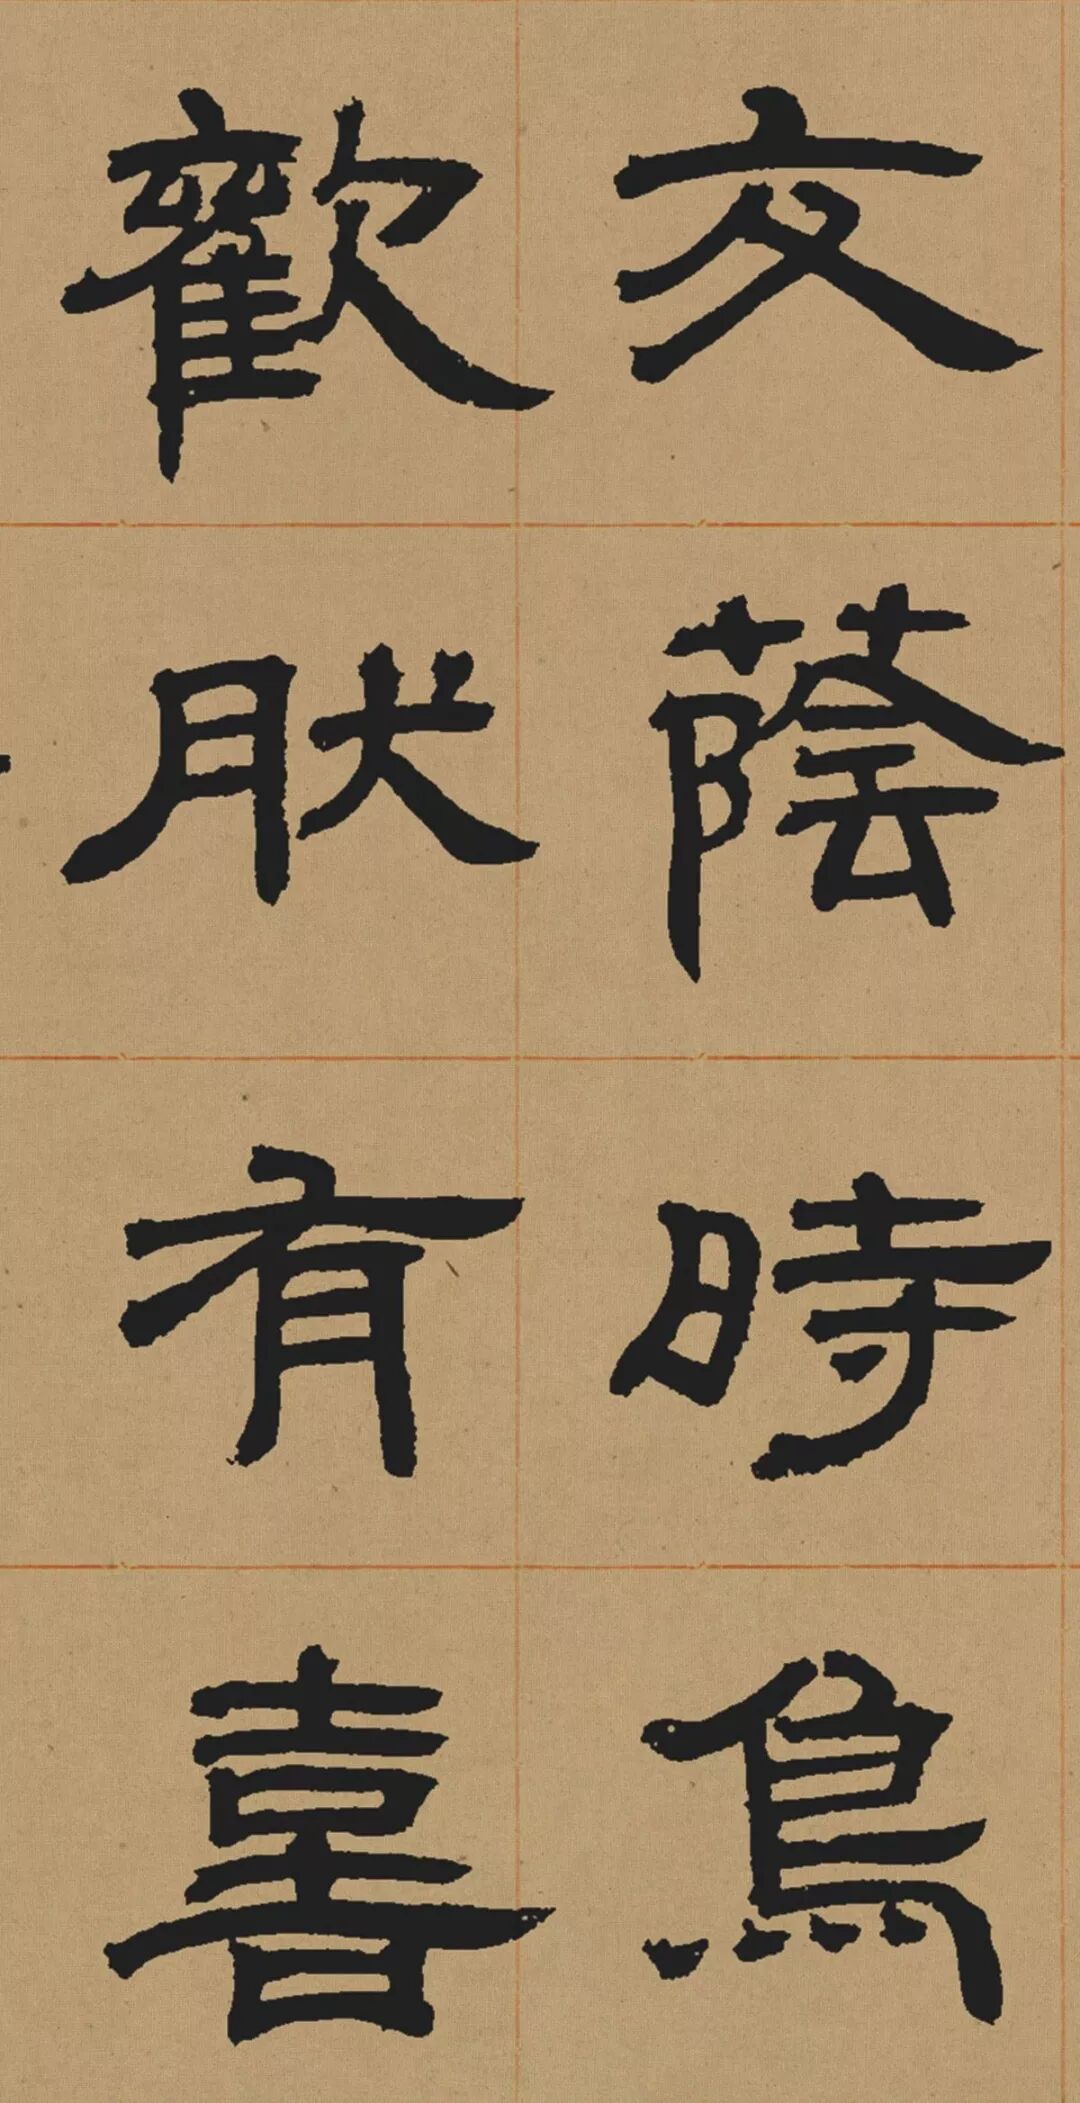 交蔭時鳥
歡肰有喜